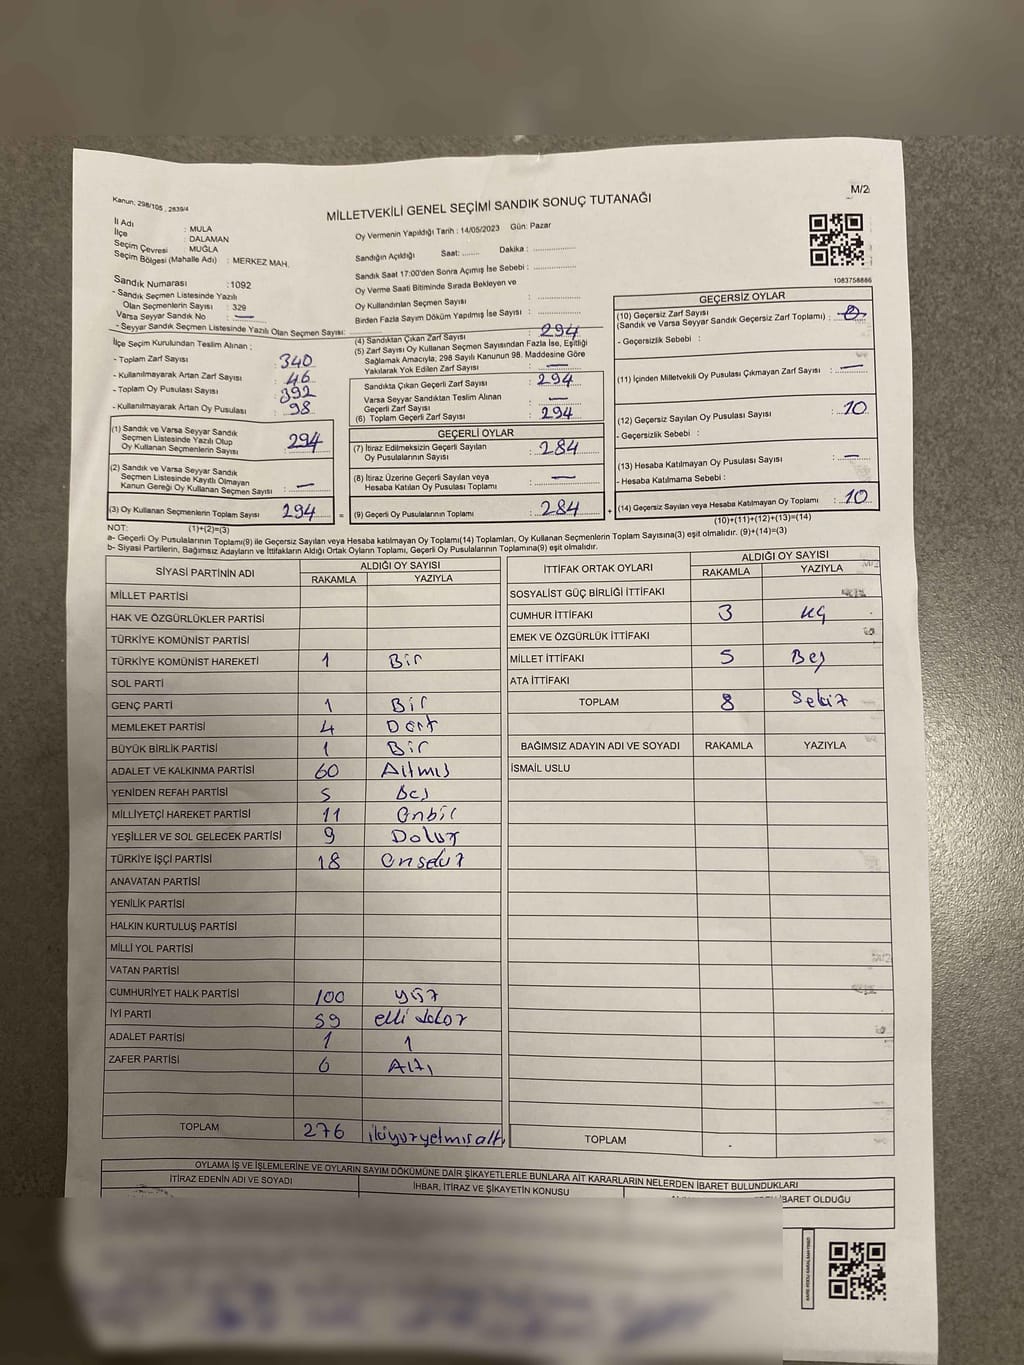 Kanun; 298/105 , 2839/4
MİLLETVEKİLİ GENEL SEÇİMİ SANDIK SONUÇ TUTANAĞI
M/2
İl Adı : MULA
İlçe : DALAMAN
Seçim Çevresi : MUĞLA
Seçim Bölgesi (Mahalle Adı) : MERKEZ MAH.
Oy Vermenin Yapıldığı Tarih : 14/05/2023 Gün: Pazar
Sandığın Açıldığı Saat: ........ Dakika : ................
Sandık Saat 17:00'den Sonra Açımış İse Sebebi : ................
Oy Verme Saati Bitiminde Sırada Bekleyen ve
Oy Kullandırılan Seçmen Sayısı : ................
Birden Fazla Sayım Döküm Yapılmış İse Sayısı : ................
1083758886
Sandık Numarası : 1092
- Sandık Seçmen Listesinde Yazılı
Olan Seçmenlerin Sayısı : 329
Varsa Seyyar Sandık No : —
- Seyyar Sandık Seçmen Listesinde Yazılı Olan Seçmen Sayısı:
İlçe Seçim Kurulundan Teslim Alınan :
- Toplam Zarf Sayısı : 340
- Kullanılmayarak Artan Zarf Sayısı : 46
- Toplam Oy Pusulası Sayısı : 392
- Kullanılmayarak Artan Oy Pusulası : 98
(1) Sandık ve Varsa Seyyar Sandık
Seçmen Listesinde Yazılı Olup
Oy Kullanan Seçmenlerin Sayısı : 294
(2) Sandık ve Varsa Seyyar Sandık
Seçmen Listesinde Kayıtlı Olmayan
Kanun Gereği Oy Kullanan Seçmen Sayısı : —
(3) Oy Kullanan Seçmenlerin Toplam Sayısı : 294 =
(4) Sandıktan Çıkan Zarf Sayısı : 294
(5) Zarf Sayısı Oy Kullanan Seçmen Sayısından Fazla İse, Eşitliği
Sağlamak Amacıyla; 298 Sayılı Kanunun 98. Maddesine Göre
Yakılarak Yok Edilen Zarf Sayısı : —
Sandıkta Çıkan Geçerli Zarf Sayısı : 294
Varsa Seyyar Sandıktan Teslim Alınan
Geçerli Zarf Sayısı : —
(6) Toplam Geçerli Zarf Sayısı : 294
GEÇERLİ OYLAR
(7) İtiraz Edilmeksizin Geçerli Sayılan
Oy Pusulalarının Sayısı : 284
(8) İtiraz Üzerine Geçerli Sayılan veya
Hesaba Katılan Oy Pusulası Toplamı : —
(9) Geçerli Oy Pusulalarının Toplamı : 284 +
GEÇERSİZ OYLAR
(10) Geçersiz Zarf Sayısı
(Sandık ve Varsa Seyyar Sandık Geçersiz Zarf Toplamı) :
- Geçersizlik Sebebi :
(11) İçinden Milletvekili Oy Pusulası Çıkmayan Zarf Sayısı : —
(12) Geçersiz Sayılan Oy Pusulası Sayısı : 10
- Geçersizlik Sebebi :
(13) Hesaba Katılmayan Oy Pusulası Sayısı : —
- Hesaba Katılmama Sebebi :
(14) Geçersiz Sayılan veya Hesaba Katılmayan Oy Toplamı : 10
NOT: (1)+(2)=(3)
(10)+(11)+(12)+(13)=(14)
a- Geçerli Oy Pusulalarının Toplamı(9) ile Geçersiz Sayılan veya Hesaba Katılmayan Oy Toplamı(14) Toplamları, Oy Kullanan Seçmenlerin Toplam Sayısına(3) eşit olmalıdır. (9)+(14)=(3)
b- Siyasi Partilerin, Bağımsız Adayların ve İttifakların Aldığı Ortak Oyların Toplamı, Geçerli Oy Pusulalarının Toplamına(9) eşit olmalıdır.
SİYASİ PARTİNİN ADI ALDIĞI OY SAYISI
RAKAMLA YAZIYLA
MİLLET PARTİSİ
HAK VE ÖZGÜRLÜKLER PARTİSİ
TÜRKİYE KOMÜNİST PARTİSİ
TÜRKİYE KOMÜNİST HAREKETİ 1 Bir
SOL PARTİ
GENÇ PARTİ 1 Bir
MEMLEKET PARTİSİ 4 Dört
BÜYÜK BİRLİK PARTİSİ 1 Bir
ADALET VE KALKINMA PARTİSİ 60 Altmış
YENİDEN REFAH PARTİSİ 5 Beş
MİLLİYETÇİ HAREKET PARTİSİ 11 Onbir
YEŞİLLER VE SOL GELECEK PARTİSİ 9 Dokuz
TÜRKİYE İŞÇİ PARTİSİ 18 Onsekiz
ANAVATAN PARTİSİ
YENİLİK PARTİSİ
HALKIN KURTULUŞ PARTİSİ
MİLLİ YOL PARTİSİ
VATAN PARTİSİ
CUMHURİYET HALK PARTİSİ 100 yüz
İYİ PARTİ 59 elli dokuz
ADALET PARTİSİ 1 1
ZAFER PARTİSİ 6 Altı
TOPLAM 276 ikiyüzyetmişaltı
İTTİFAK ORTAK OYLARI ALDIĞI OY SAYISI
RAKAMLA YAZIYLA
SOSYALİST GÜÇ BİRLİĞİ İTTİFAKI
CUMHUR İTTİFAKI 3 üç
EMEK VE ÖZGÜRLÜK İTTİFAKI
MİLLET İTTİFAKI 5 Beş
ATA İTTİFAKI
TOPLAM 8 Sekiz
BAĞIMSIZ ADAYIN ADI VE SOYADI RAKAMLA YAZIYLA
İSMAİL USLU
TOPLAM
OYLAMA İŞ VE İŞLEMLERİNE VE OYLARIN SAYIM DÖKÜMÜNE DAİR ŞİKAYETLERLE BUNLARA AİT KARARLARIN NELERDEN İBARET BULUNDUKLARI
İTİRAZ EDENİN ADI VE SOYADI İHBAR, İTİRAZ VE ŞİKAYETİN KONUSU İBARET OLDUĞU